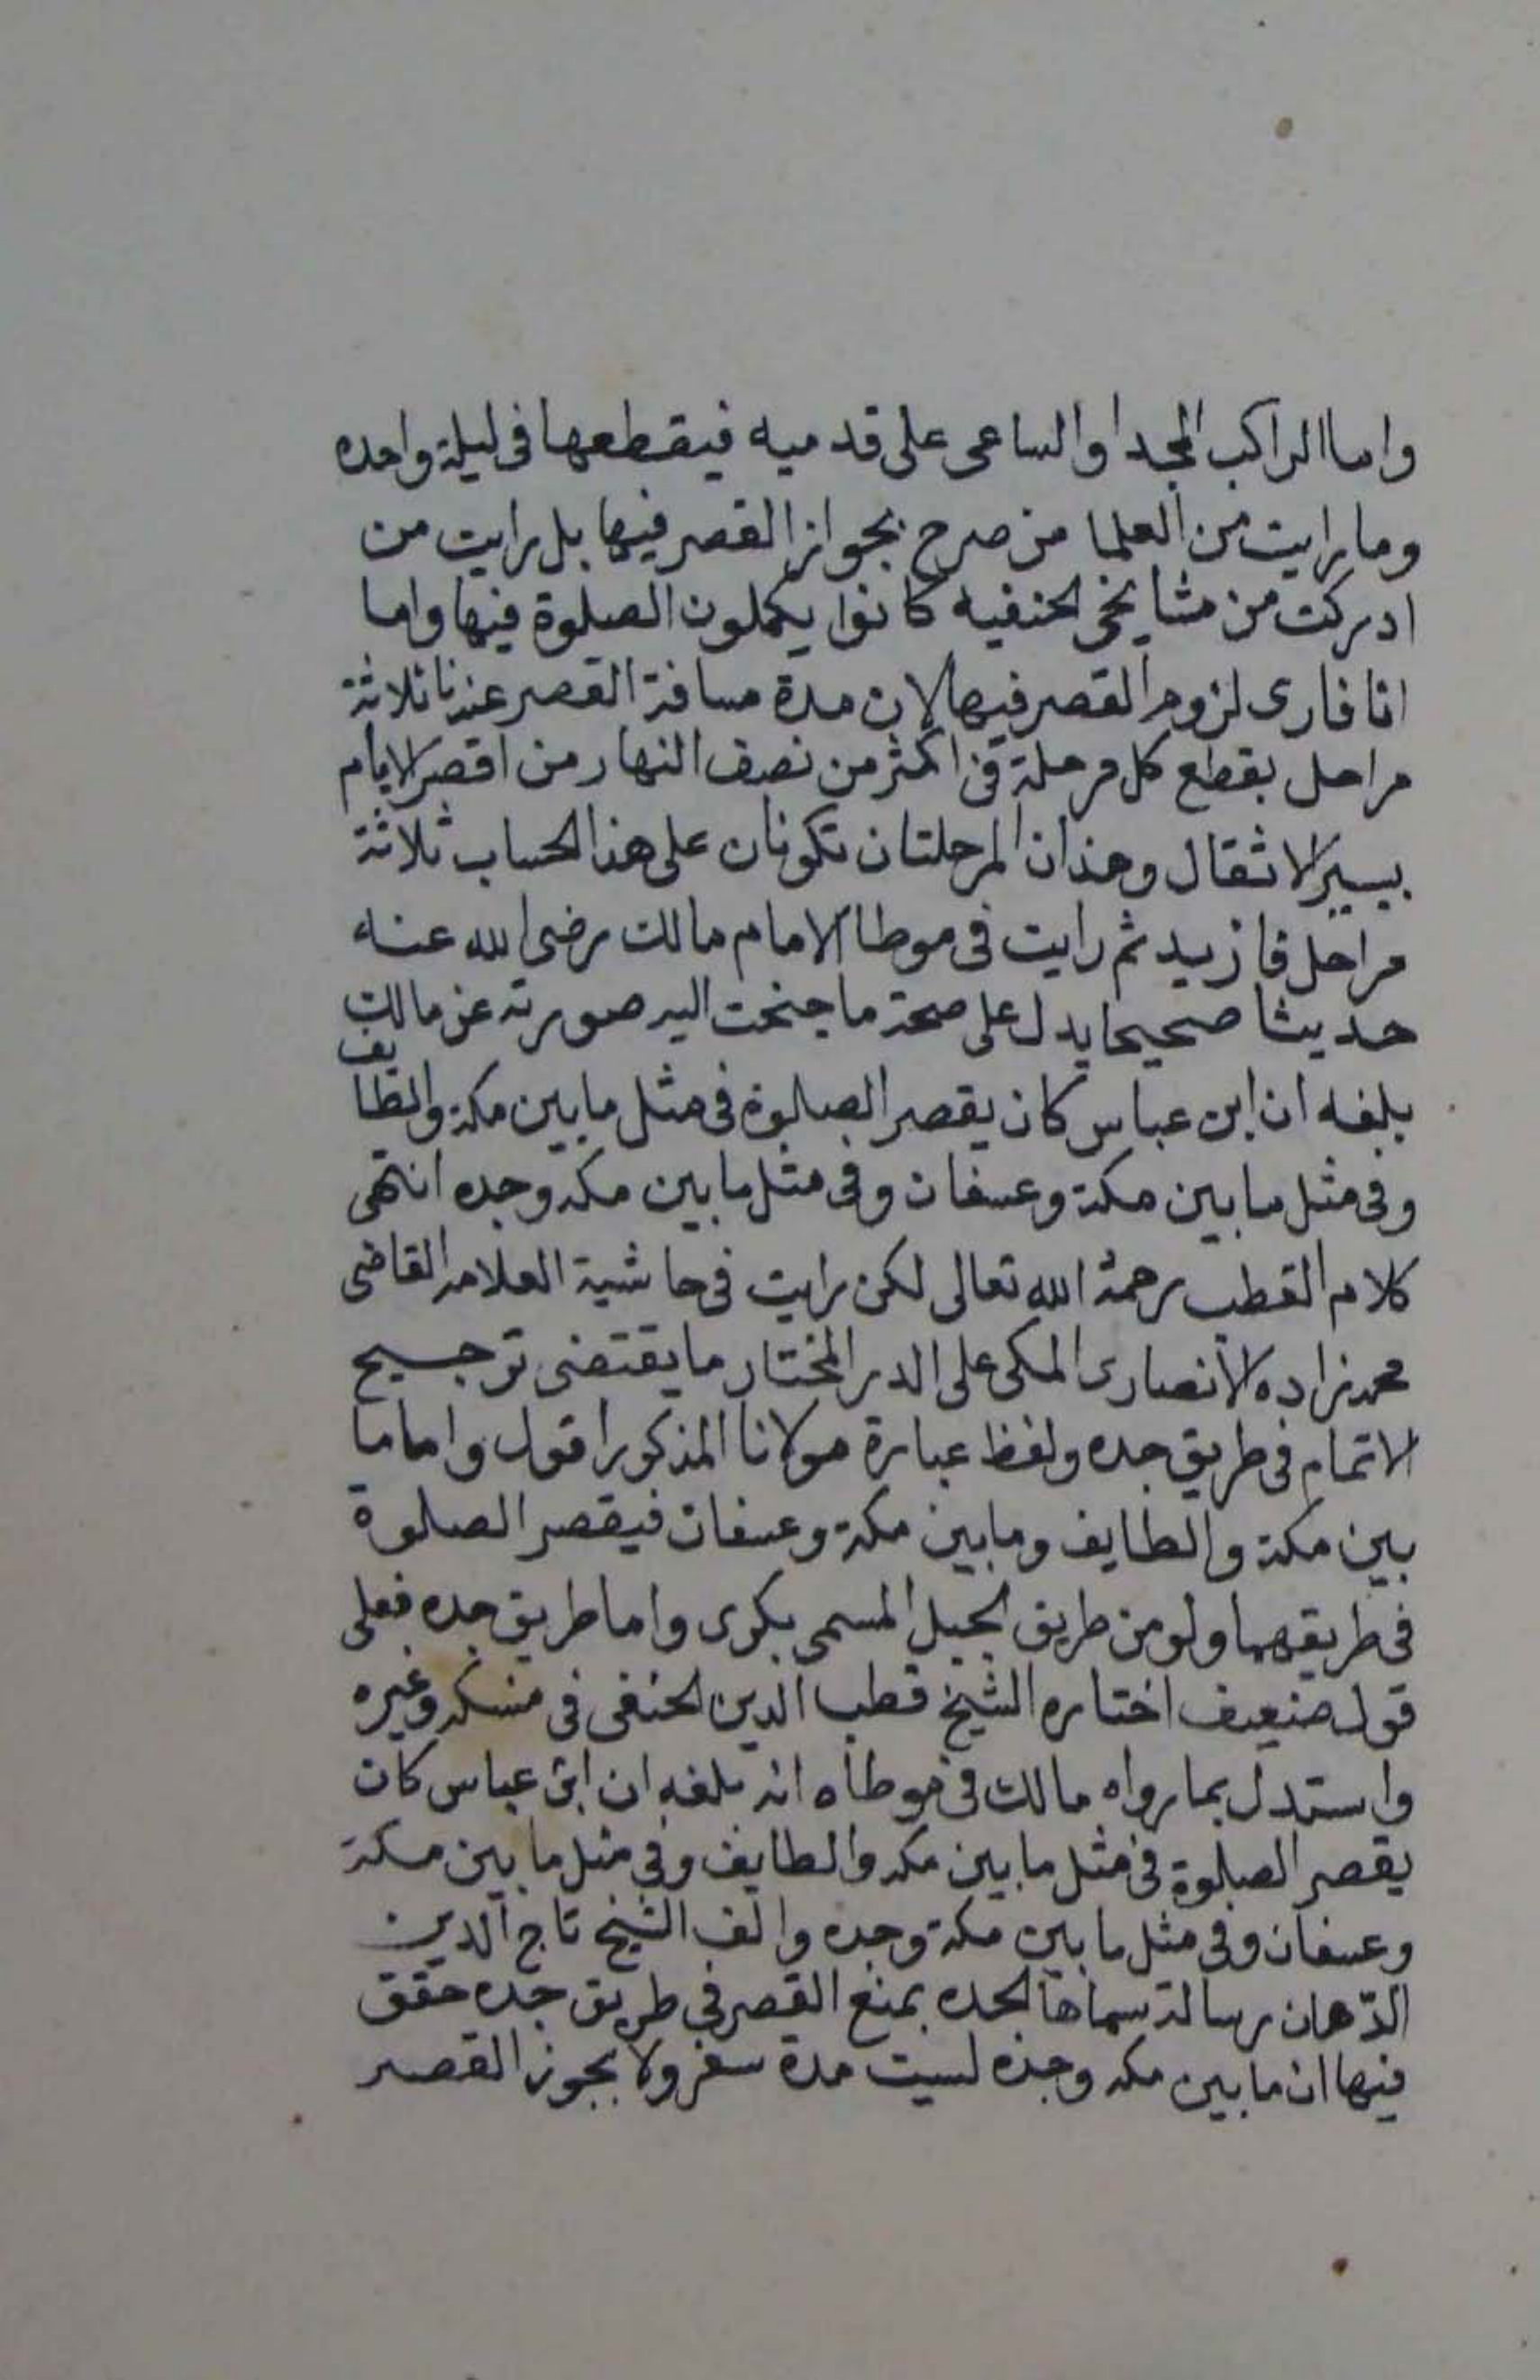 واما الراكب المجد او الساعى على قدميه فيقطعها فى ليلة واحده
وما رايت من العلما من صرح بجواز القصر فيها بل رايت من
ادركت من مشايخى الحنفيه كانوا يكملون الصلوة فيها واما
انا فارى لزوم القصر فيها لان مدة مسافة القصر عندنا ثلاثة
مراحل بقطع كل مرحلة فى اكثر من نصف النهار من اقصر الايام
بسير الاثقال وهذان المرحلتان تكونان على هذا الحساب ثلاثة
مراحل فازيد ثم رايت فى موطا الامام مالك رضى الله عنه
حديثا صحيحا يدل على صحة ما جنحت اليه صورته عن مالك
بلغه ان ابن عباس كان يقصر الصلوة فى مثل ما بين مكة والطايف
وفى مثل ما بين مكة وعسفان وفى مثل ما بين مكه وجده انتهى
كلام القطب رحمة الله تعالى لكن رايت فى حاشية العلامه القاضى
محمد زاده الانصارى المكى على الدر المختار ما يقتضى ترجيح
الاتمام فى طريق جده ولفظ عبارة مولانا المذكور اقول واما ما
بين مكة والطايف وما بين مكة وعسفان فيقصر الصلوة
فى طريقهما ولو من طريق الجبل المسمى بكرى واما طريق جده فعلى
قول ضعيف اختاره الشيخ قطب الدين الحنفى فى منسكه وغيره
واستدل بما رواه مالك فى موطاه انه بلغه ان ابن عباس كان
يقصر الصلوة فى مثل ما بين مكه والطايف وفى مثل ما بين مكة
وعسفان وفى مثل ما بين مكة وجده والف الشيخ تاج الدين
الدّهان رسالة سماها الحده بمنع القصر فى طريق جده حقق
فيها ان ما بين مكه وجده ليست مدة سفر ولا يجوز القصر